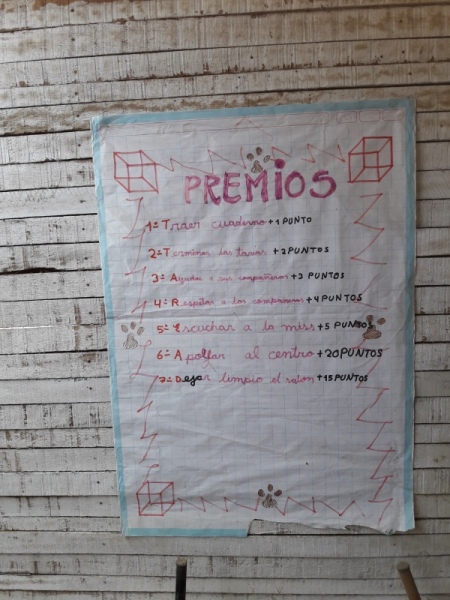 PREMIOS
1- Traer cuaderno +1 PUNTO
2- Terminar las tarias +2 PUNTOS
3- Ayudar a sus compañeros +3 PUNTOS
4- Respetar a los compañeros +4 PUNTOS
5- Escuchar a la miss +5 PUNTOS
6- Apollar al centro +20 PUNTOS
7- Dejar limpio el salon +15 PUNTOS